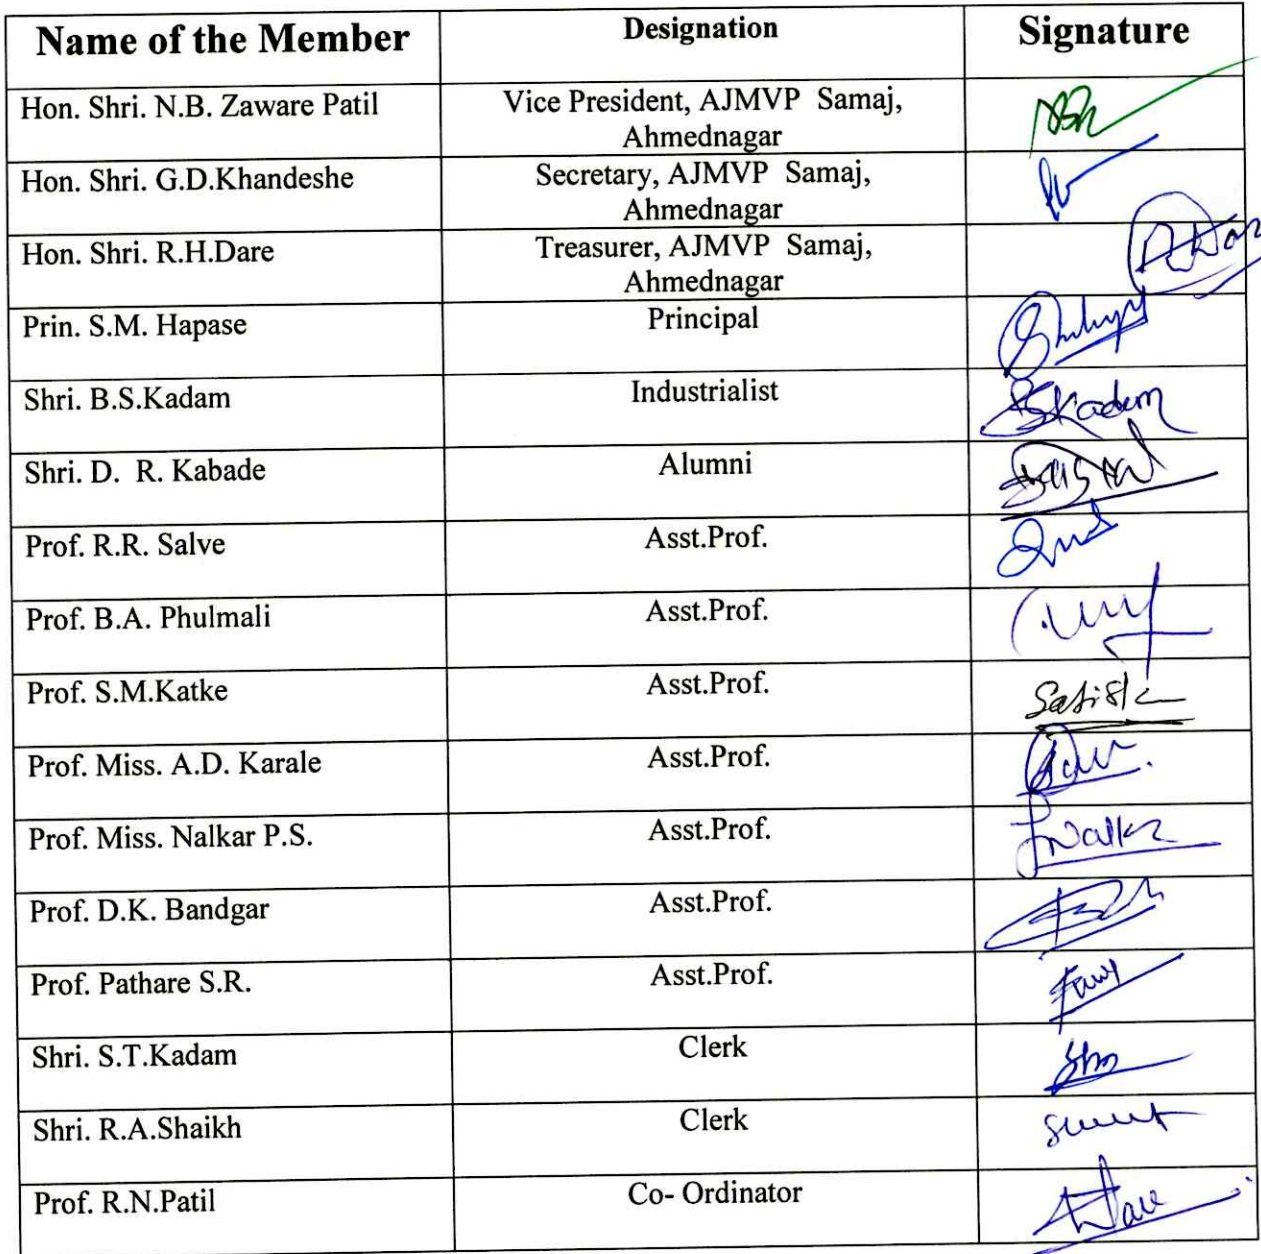 Name of the Member Designation Signature
Hon. Shri. N.B. Zaware Patil Vice President, AJMVP Samaj,
Ahmednagar
Hon. Shri. G.D.Khandeshe Secretary, AJMVP Samaj,
Ahmednagar
Hon. Shri. R.H.Dare Treasurer, AJMVP Samaj,
Ahmednagar
Prin. S.M. Hapase Principal
Shri. B.S.Kadam Industrialist BSKadam
Shri. D. R. Kabade Alumni
Prof. R.R. Salve Asst.Prof.
Prof. B.A. Phulmali Asst.Prof.
Prof. S.M.Katke Asst.Prof. Satish
Prof. Miss. A.D. Karale Asst.Prof.
Prof. Miss. Nalkar P.S. Asst.Prof.
Prof. D.K. Bandgar Asst.Prof.
Prof. Pathare S.R. Asst.Prof.
Shri. S.T.Kadam Clerk
Shri. R.A.Shaikh Clerk
Prof. R.N.Patil Co- Ordinator